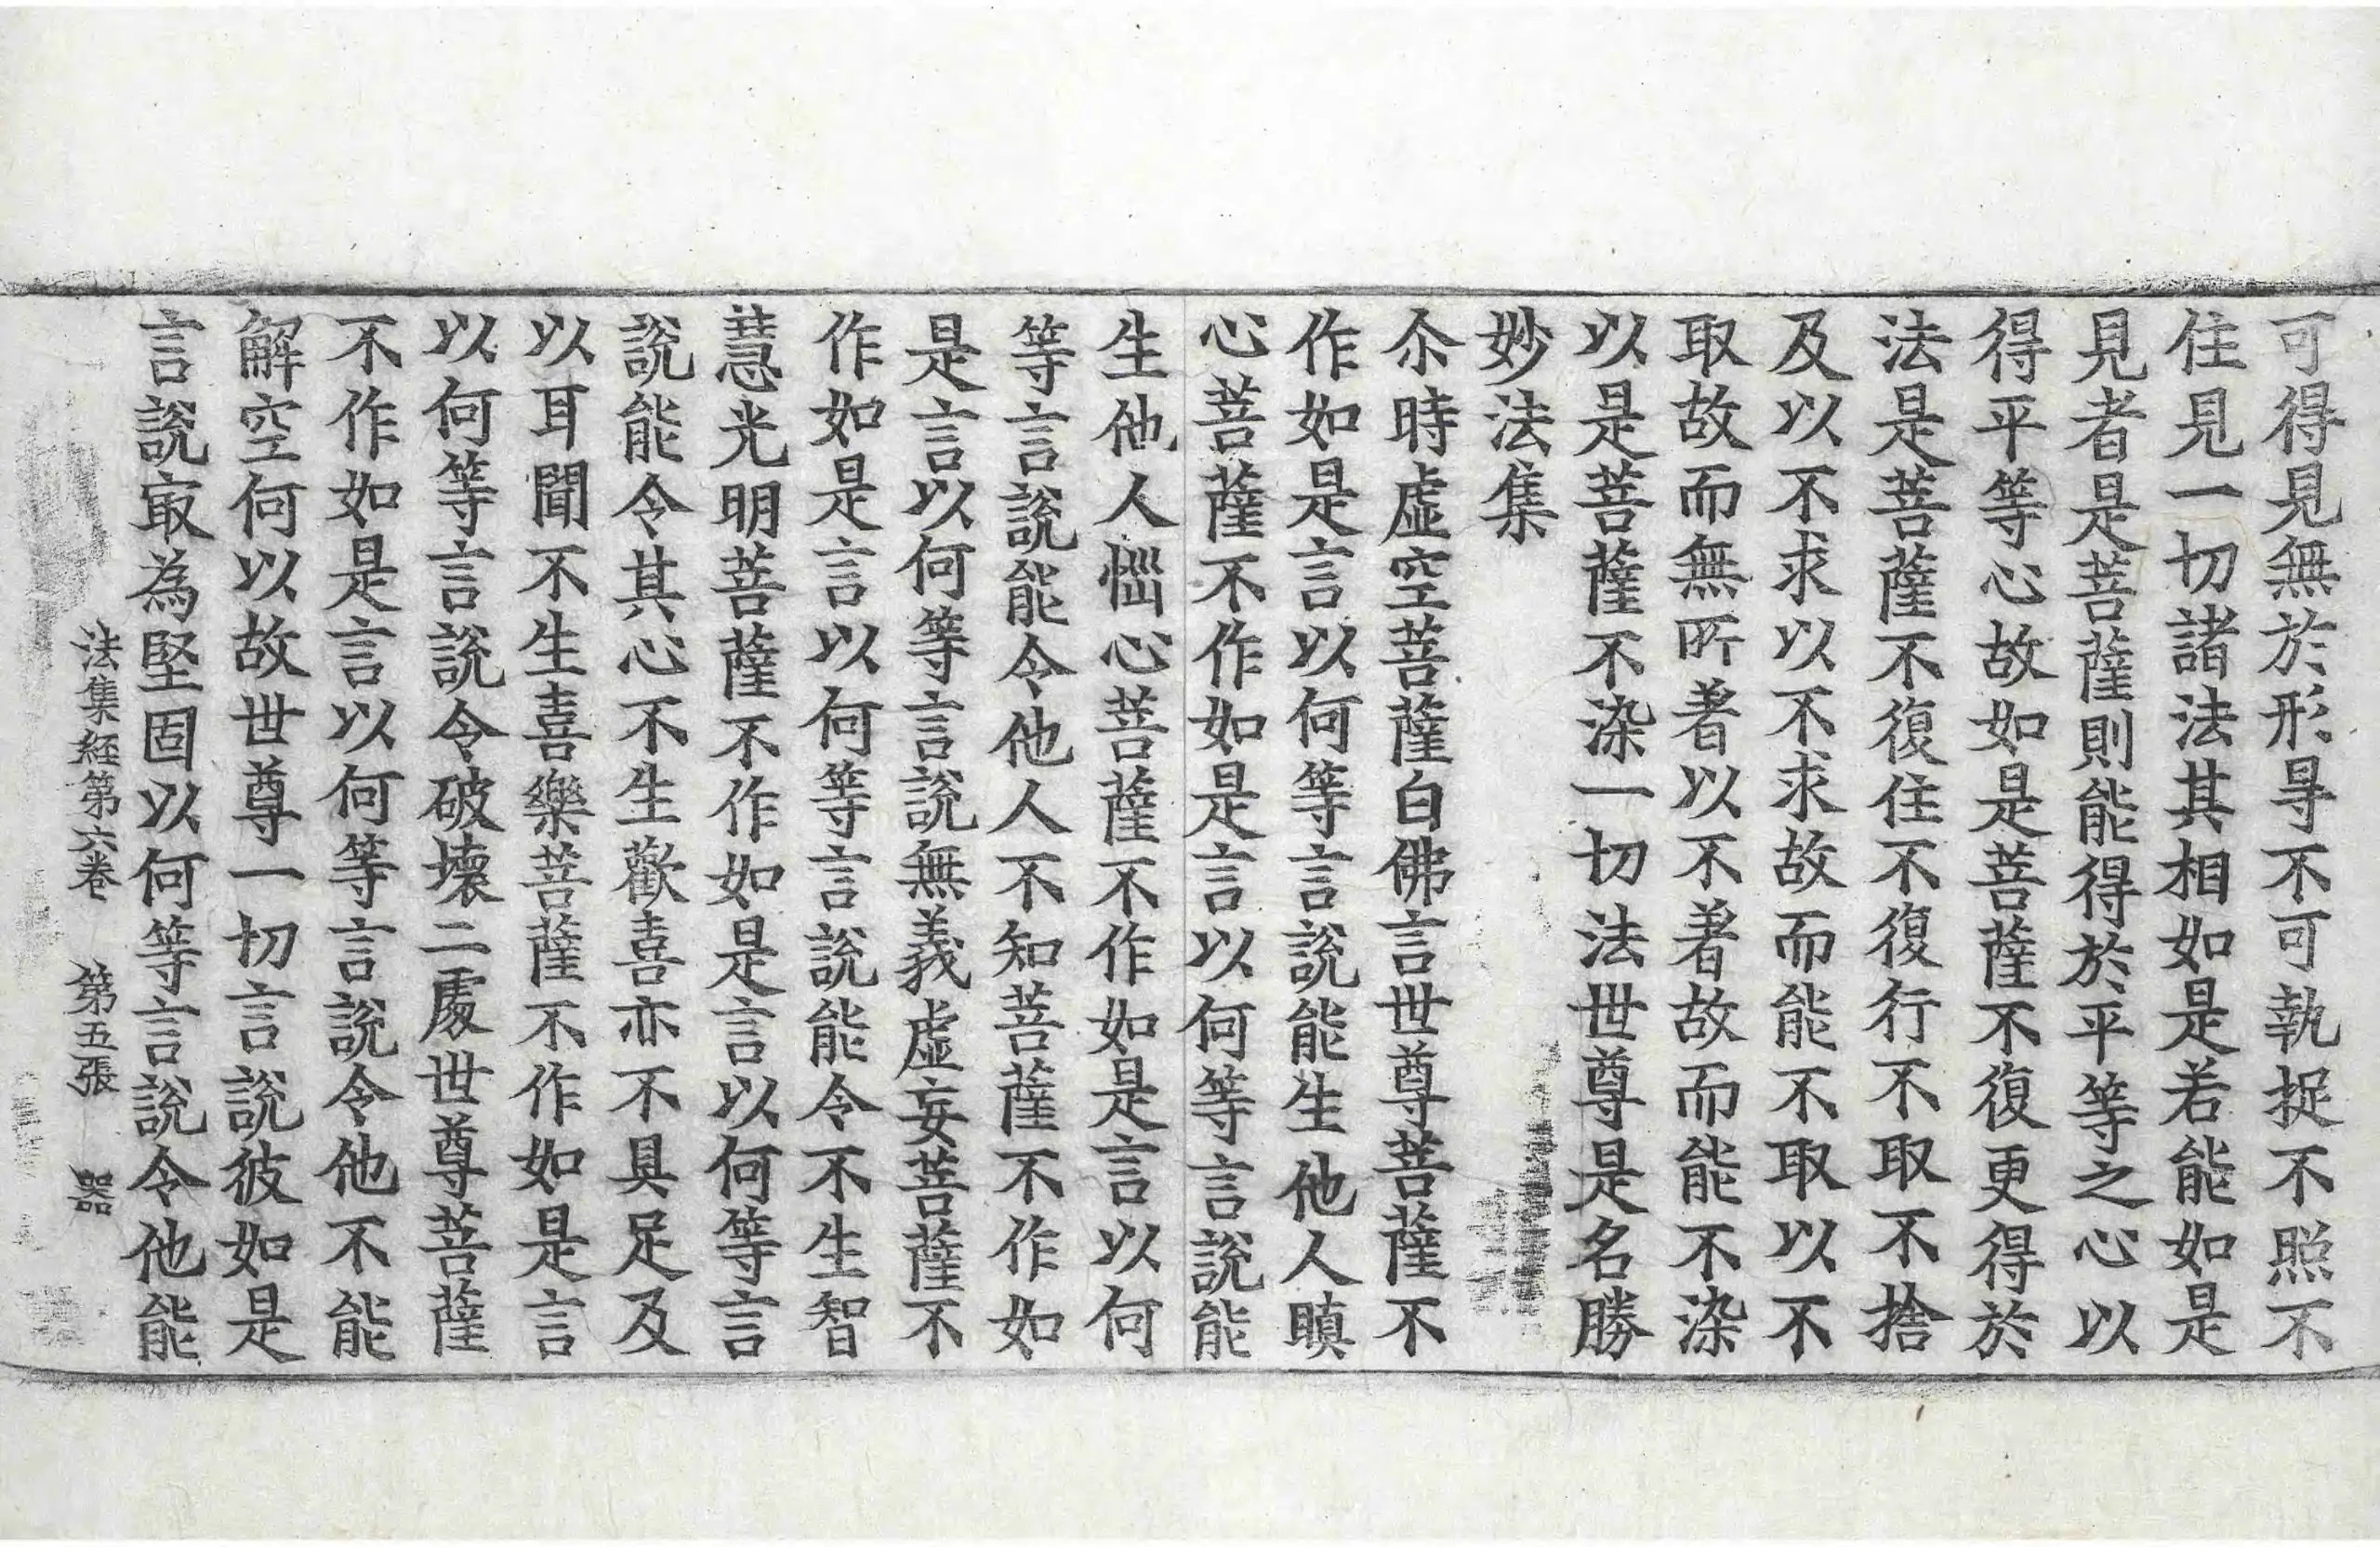 可得見無於形㝵不可執捉不照不
住見一切諸法其相如是若能如是
見者是菩薩則能得於平等之心以
得平等心故如是菩薩不復更得於
法是菩薩不復住不復行不取不捨
及以不求以不求故而能不取以不
取故而無所著以不著故而能不染
以是菩薩不染一切法世尊是名勝
妙法集
尒時虛空菩薩白佛言世尊菩薩不
作如是言以何等言說能生他人瞋
心菩薩不作如是言以何等言說能
生他人惱心菩薩不作如是言以何
等言說能令他人不知菩薩不作如
是言以何等言說無義虛妄菩薩不
作如是言以何等言說能令不生智
慧光明菩薩不作如是言以何等言
說能令其心不生歡喜亦不具足及
以耳聞不生喜樂菩薩不作如是言
以何等言說令破壞二處世尊菩薩
不作如是言以何等言說令他不能
解空何以故世尊一切言說彼如是
言說㝡為堅固以何等言說令他能
法集經第六卷　第五張　器